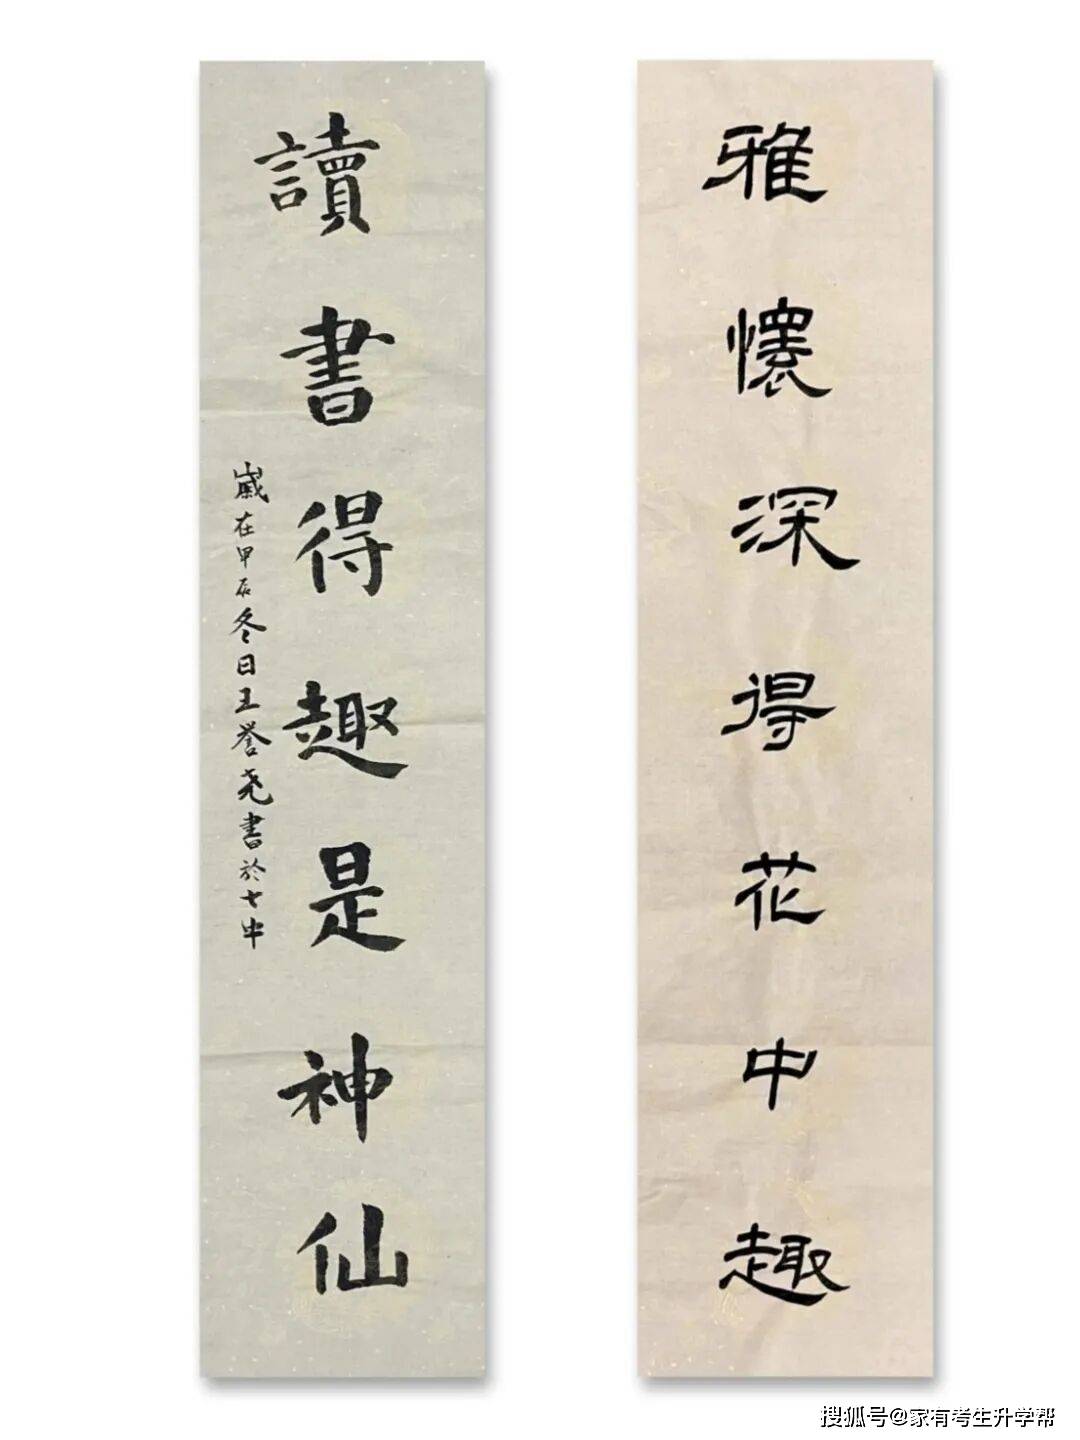 雅懷深得花中趣
讀書得趣是神仙
歲在甲辰冬日王誉尧書於七中
搜狐号@家有考生升学帮